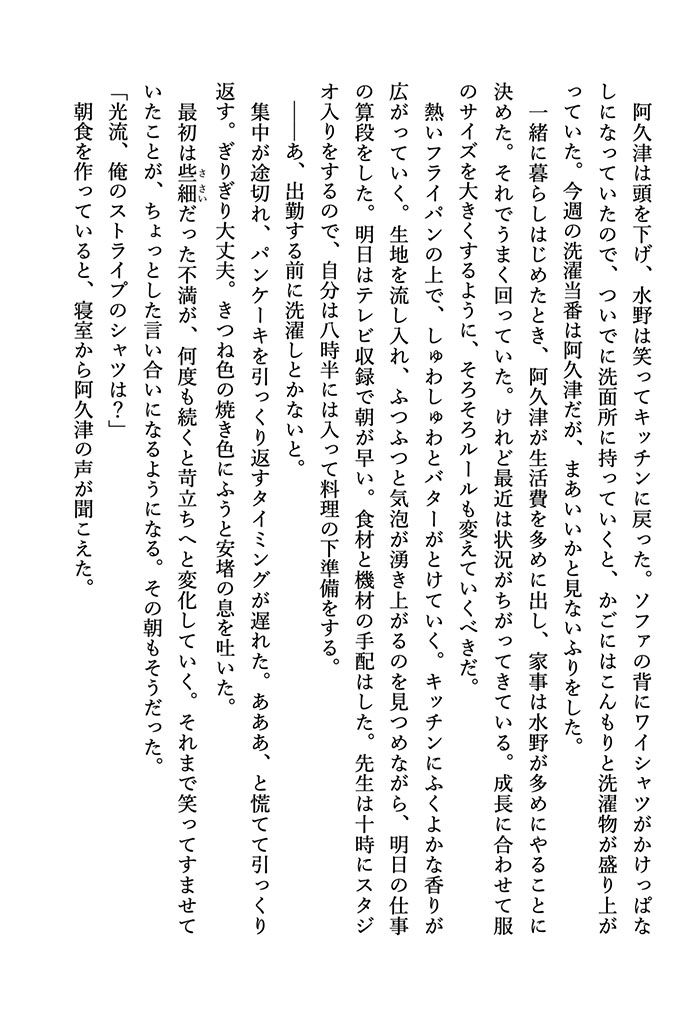 阿久津は頭を下げ、水野は笑ってキッチンに戻った。ソファの背にワイシャツがかけっぱな
しになっていたので、ついでに洗面所に持っていくと、かごにはこんもりと洗濯物が盛り上が
っていた。今週の洗濯当番は阿久津だが、まあいいかと見ないふりをした。
　一緒に暮らしはじめたとき、阿久津が生活費を多めに出し、家事は水野が多めにやることに
決めた。それでうまく回っていた。けれど最近は状況がちがってきている。成長に合わせて服
のサイズを大きくするように、そろそろルールも変えていくべきだ。
　熱いフライパンの上で、しゅわしゅわとバターがとけていく。キッチンにふくよかな香りが
広がっていく。生地を流し入れ、ふつふつと気泡が湧き上がるのを見つめながら、明日の仕事
の算段をした。明日はテレビ収録で朝が早い。食材と機材の手配はした。先生は十時にスタジ
オ入りをするので、自分は八時半には入って料理の下準備をする。
　――あ、出勤する前に洗濯しとかないと。
　集中が途切れ、パンケーキを引っくり返すタイミングが遅れた。あああ、と慌てて引っくり
返す。ぎりぎり大丈夫。きつね色の焼き色にふうと安堵の息を吐いた。
　最初は些細ささいだった不満が、何度も続くと苛立ちへと変化していく。それまで笑ってすませて
いたことが、ちょっとした言い合いになるようになる。その朝もそうだった。
「光流、俺のストライプのシャツは？」
　朝食を作っていると、寝室から阿久津の声が聞こえた。